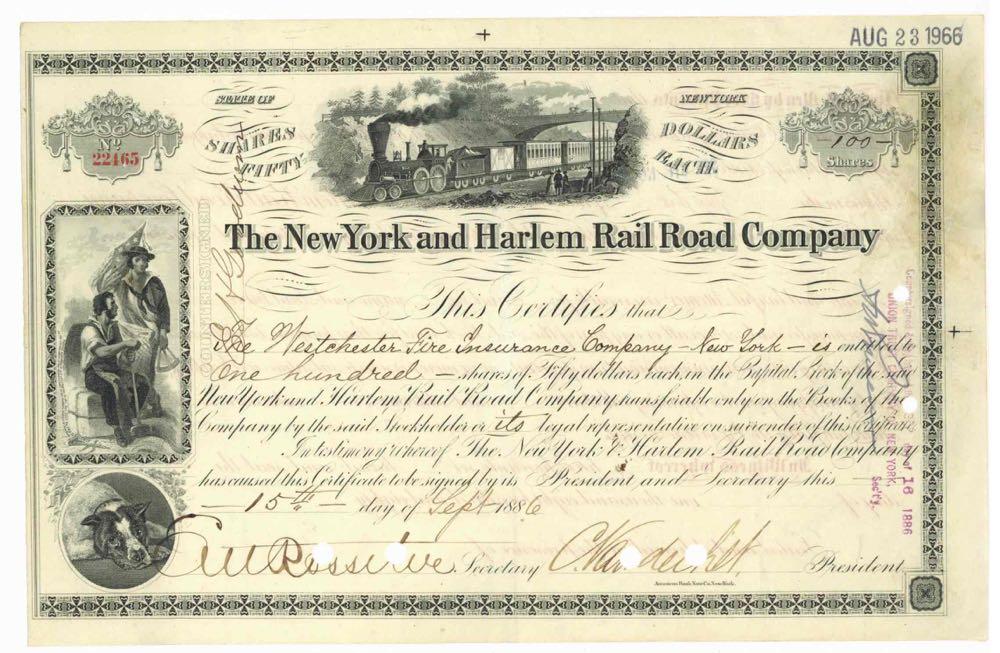 AUG 23 1966
STATE OF NEW YORK
SHARES DOLLARS
FIFTY EACH.
Nº
22465
-100-
Shares
COUNTERSIGNED
The New York and Harlem Rail Road Company
This Certifies that
The Westchester Fire Insurance Company - New York - is entitled to
One hundred - shares of Fifty dollars each, in the Capital Stock of the said
New York and Harlem Rail Road Company transferable only on the Books of the
Company by the said Stockholder or its legal representative on surrender of this Certificate
In testimony whereof The New York & Harlem Rail Road Company
has caused this Certificate to be signed by its President and Secretary this
- 15th - day of Sept 1886
Secretary C. Vanderbilt President
American Bank Note Co. New York.
UNION
NEW YORK,
Sect'y.
of 16 1886